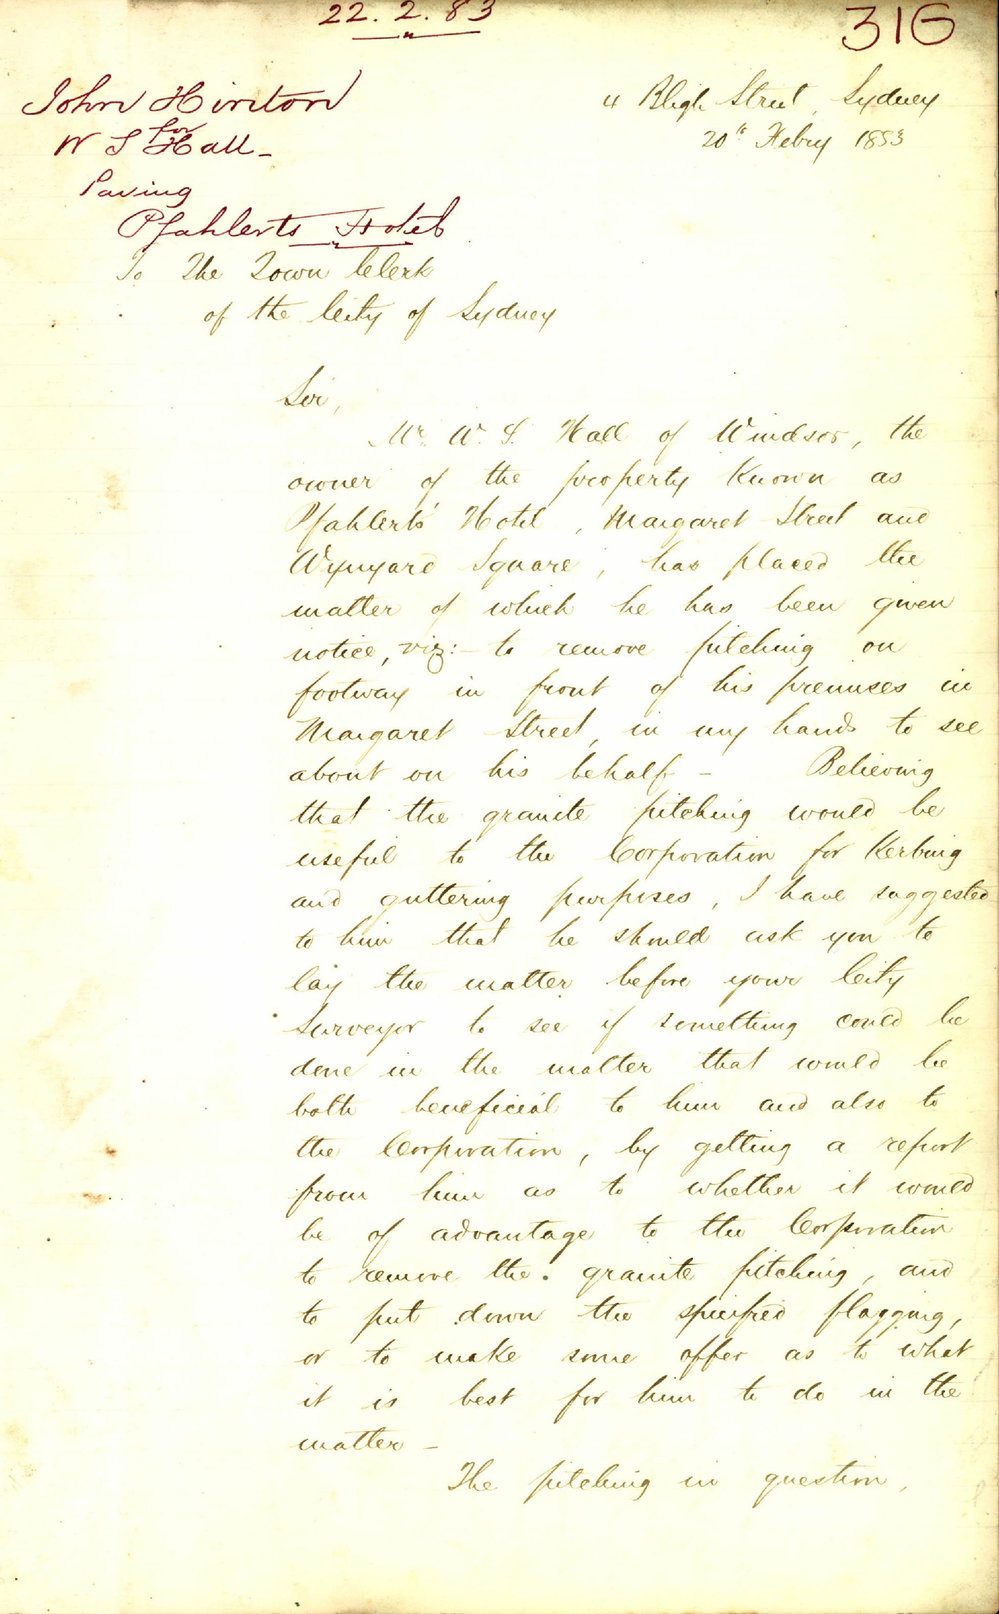 22. 2. 83
316
John Hinton
for
W S Hall -
Paving
Pfahlerts Hotel
4 Bligh Street, Sydney
20th Febry 1883
To The Town Clerk
of the City of Sydney
Sir,
Mr. W. S. Hall of Windsor, the
owner of the property known as
Pfahlerts' Hotel, Margaret Street and
Wynyard Square, has placed the
matter of which he has been given
notice, viz:- to remove pitching on
footway in front of his premises in
Margaret Street, in my hands to see
about on his behalf - Believing
that the granite pitching would be
useful to the Corporation for Kerbing
and guttering purposes, I have suggested
to him that he should ask you to
lay the matter before your City
Surveyor to see if something could be
done in the matter that would be
both beneficial to him and also to
the Corporation, by getting a report
from him as to whether it would
be of advantage to the Corporation
to remove the granite pitching, and
to put down the specified flagging,
or to make some offer as to what
it is best for him to do in the
matter -
The pitching in question,